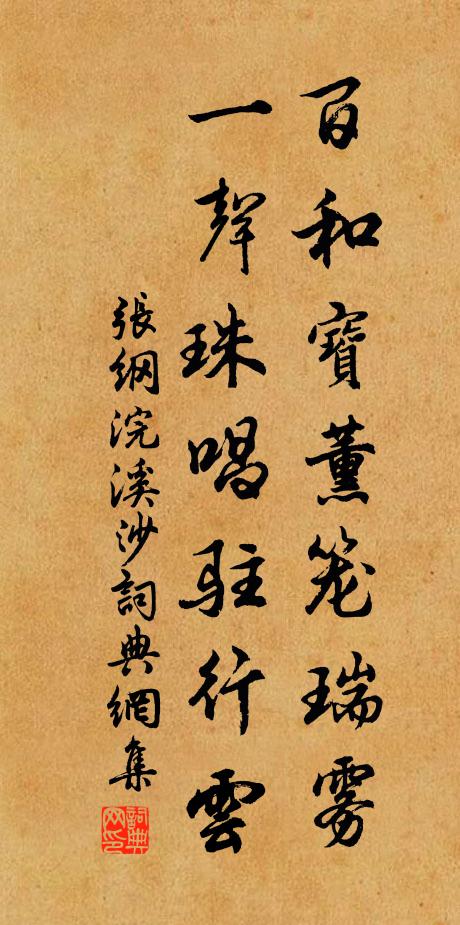 百和寶薰笼瑞雾
一聲珠唱駐行雲
張綱浣溪沙詞典網集
詞典網印